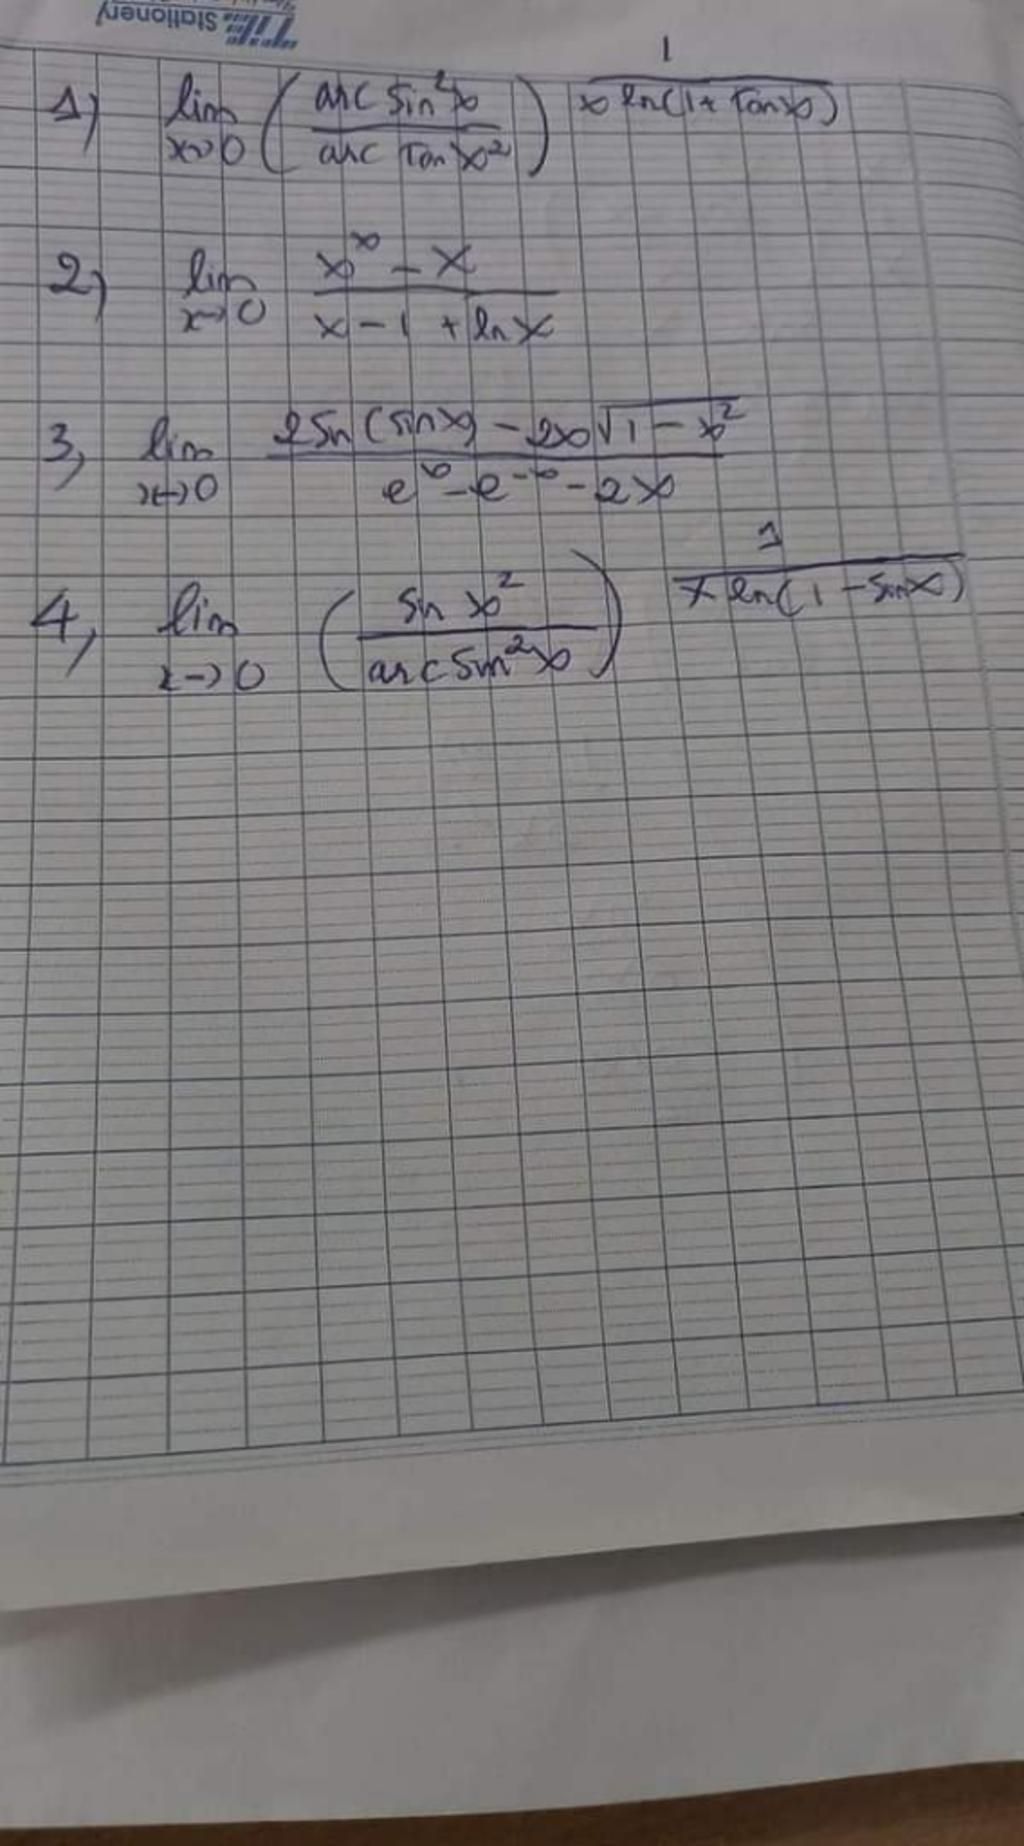 TL Stationery
1) lim x→0 (arc sin²x / arc tan x²)^(1 / x ln(1+tan x))
2) lim x→0 (x^x - x) / (x - 1 + ln x)
3, lim x→0 (2 sin(sin x) - 2x√(1 - x²)) / (e^x - e^-x - 2x)
4, lim x→0 (sin x² / arc sin²x)^(1 / x ln(1 - sin x))